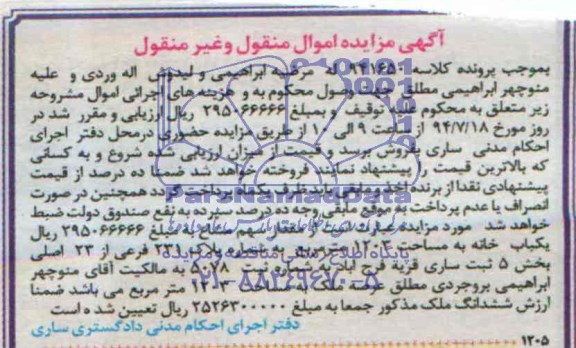 آگهی مزایده اموال منقول وغیر منقول
بموجب پرونده کلاسه ۹۴۱۶۵۰ له مرضیه ابراهیمی و لیدوش اله وردی و علیه
منوچهر ابراهیمی مطلق جهت وصول محکوم به و هزینه های اجرائی اموال مشروحه
زیر متعلق به محکوم علیه توقیف و بمبلغ ۲۹۵۰۶۶۶۶۶ ریال ارزیابی و مقرر شد در
روز مورخ ۹۴/۷/۱۸ از ساعت ۹ الی ۱۰ از طریق مزایده حضوری درمحل دفتر اجرای
احکام مدنی ساری بفروش برسد و قیمت از میزان ارزیابی شده شروع و به کسانی
که بالاترین قیمت را پیشنهاد نمایند فروخته خواهد شد ضمنا ده درصد از قیمت
پیشنهادی نقدا از برنده اخذ و مابقی باید ظرف یکماه پرداخت گردد همچنین در صورت
انصراف یا عدم پرداخت به موقع مابقی وجه ده درصد سپرده به نفع صندوق دولت ضبط
خواهد شد مورد مزایده عبارت است از مقدار سهم مشاع به مبلغ ۲۹۵۰۶۶۶۶۶ ریال
یکباب خانه به مساحت ۱۲۰۳ متر مربع به شماره پلاک ۲۳۱ فرعی از ۲۳ اصلی
بخش ۵ ثبت ساری قریه فرح آباد به شماره ثبت ۵۰۷۸ به مالکیت آقای منوچهر
ابراهیمی بروجردی مطلق عرصه ملک به مساحت ۱۲۰۳ متر مربع می باشد ضمنا
ارزش ششدانگ ملک مذکور جمعا به مبلغ ۲۵۲۶۳۰۰۰۰۰ ریال تعیین شده است
دفتر اجرای احکام مدنی دادگستری ساری
۱۲۰۵
ParsNamadData
پایگاه اطلاع رسانی مناقصه و مزایده
۰۲۱-۸۸۳۴۹۶۷۰-۵